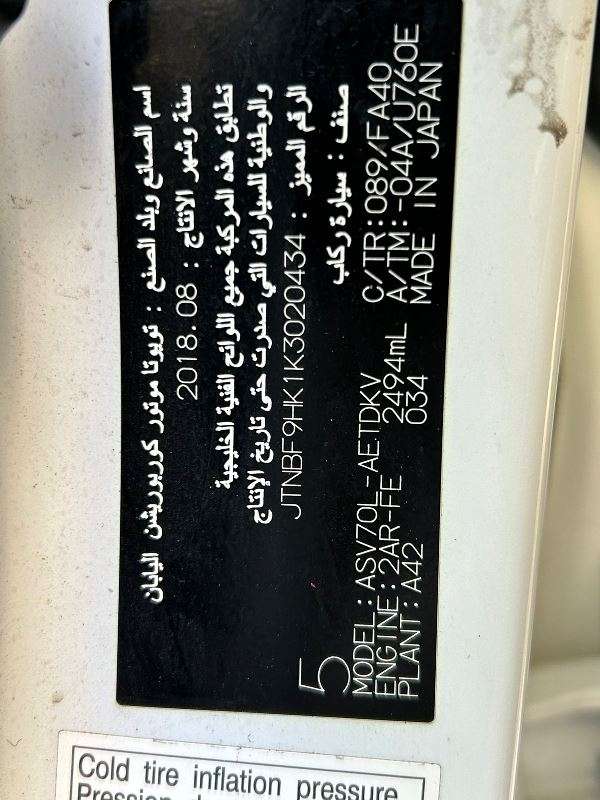 اسم الصانع وبلد الصنع : تويوتا موتور كوربوريشن اليابان
سنة وشهر الانتاج : 2018.08
تطابق هذه المركبة جميع اللوائح الفنية الخليجية
والوطنية للسيارات التي صدرت حتى تاريخ الإنتاج
الرقم المميز : JTNBF9HK1K3020434
صنف : سيارة ركاب
5
MODEL : ASV70L-AETDKV C/TR:089/FA40
ENGINE:2AR-FE 2494mL A/TM:-04A/U760E
PLANT:A42 034 MADE IN JAPAN
Cold tire inflation pressure